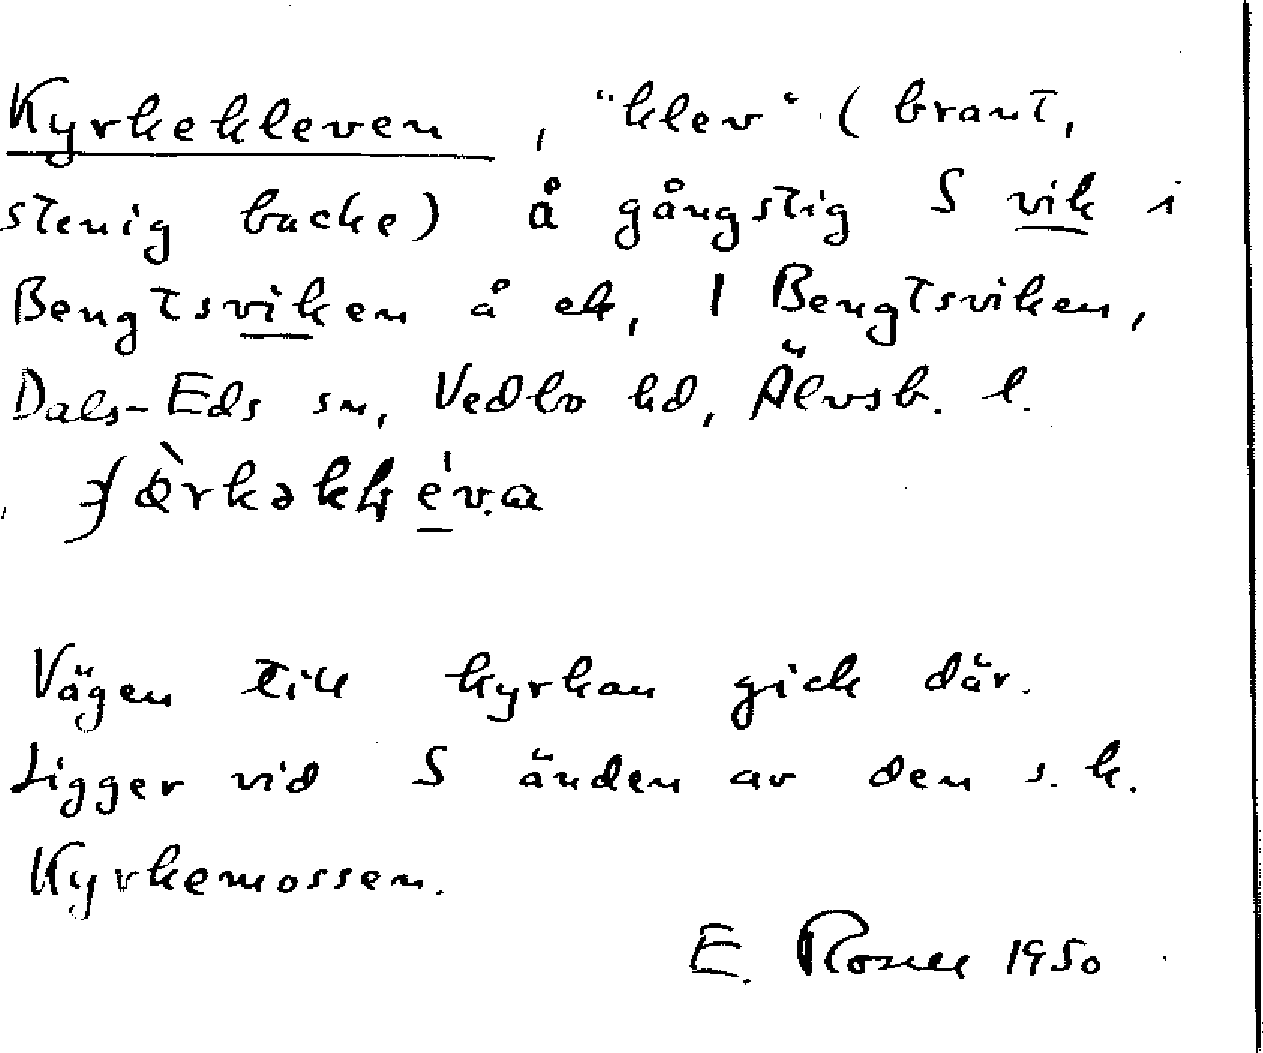 Kyrkekleven, "klev" (brant,
stenig backe) å gångstig S vik i
Bengtsviken å ek, 1 Bengtsviken,
Dals-Eds sn, Vedbo hd, Älvsb. l.
Vägen till kyrkan gick där.
Ligger vid S änden av den s.k.
Kyrkemossen.
E. Rosell 1950